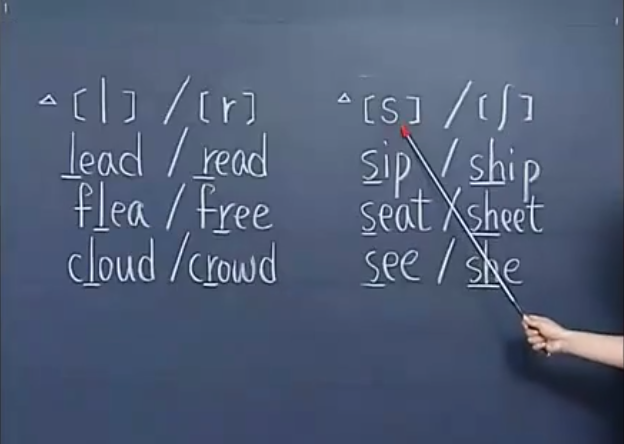 △ [l] / [r]
lead / read
flea / free
cloud / crowd
△ [s] / [ʃ]
sip / ship
seat / sheet
see / she